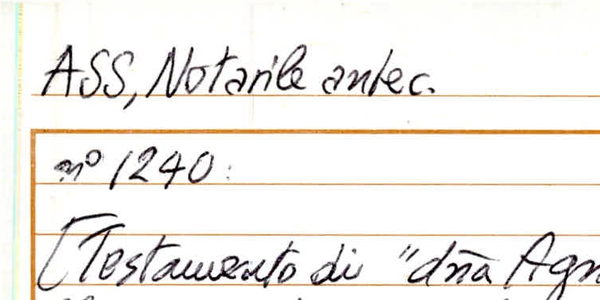 ASS, Notarile antec.
n° 1240:
[Testamento di "dña Agn